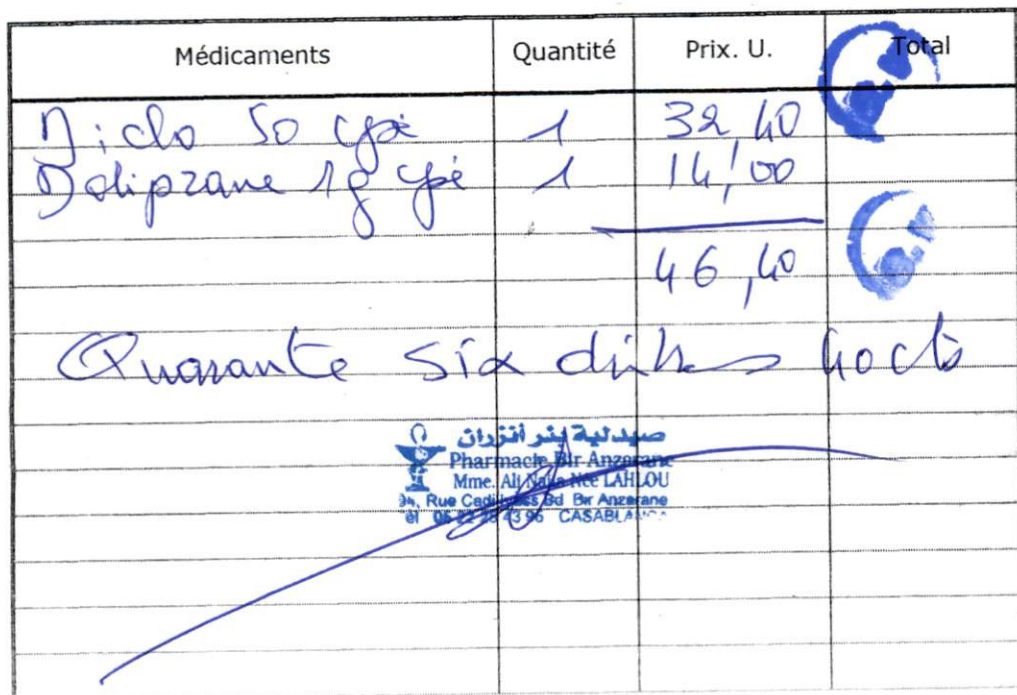 Médicaments Quantité Prix. U. Total
Diclo 50 cpé 1 32,40
Doliprane 1g cpé 1 14,00
46,40
Quarante six dirhams 40 cts
صيدلية بئر أنزران
Pharmacie Bir Anzerane
Mme. Ali Née LAHLOU
94, Rue Bd Bir Anzerane
CASABLANCA